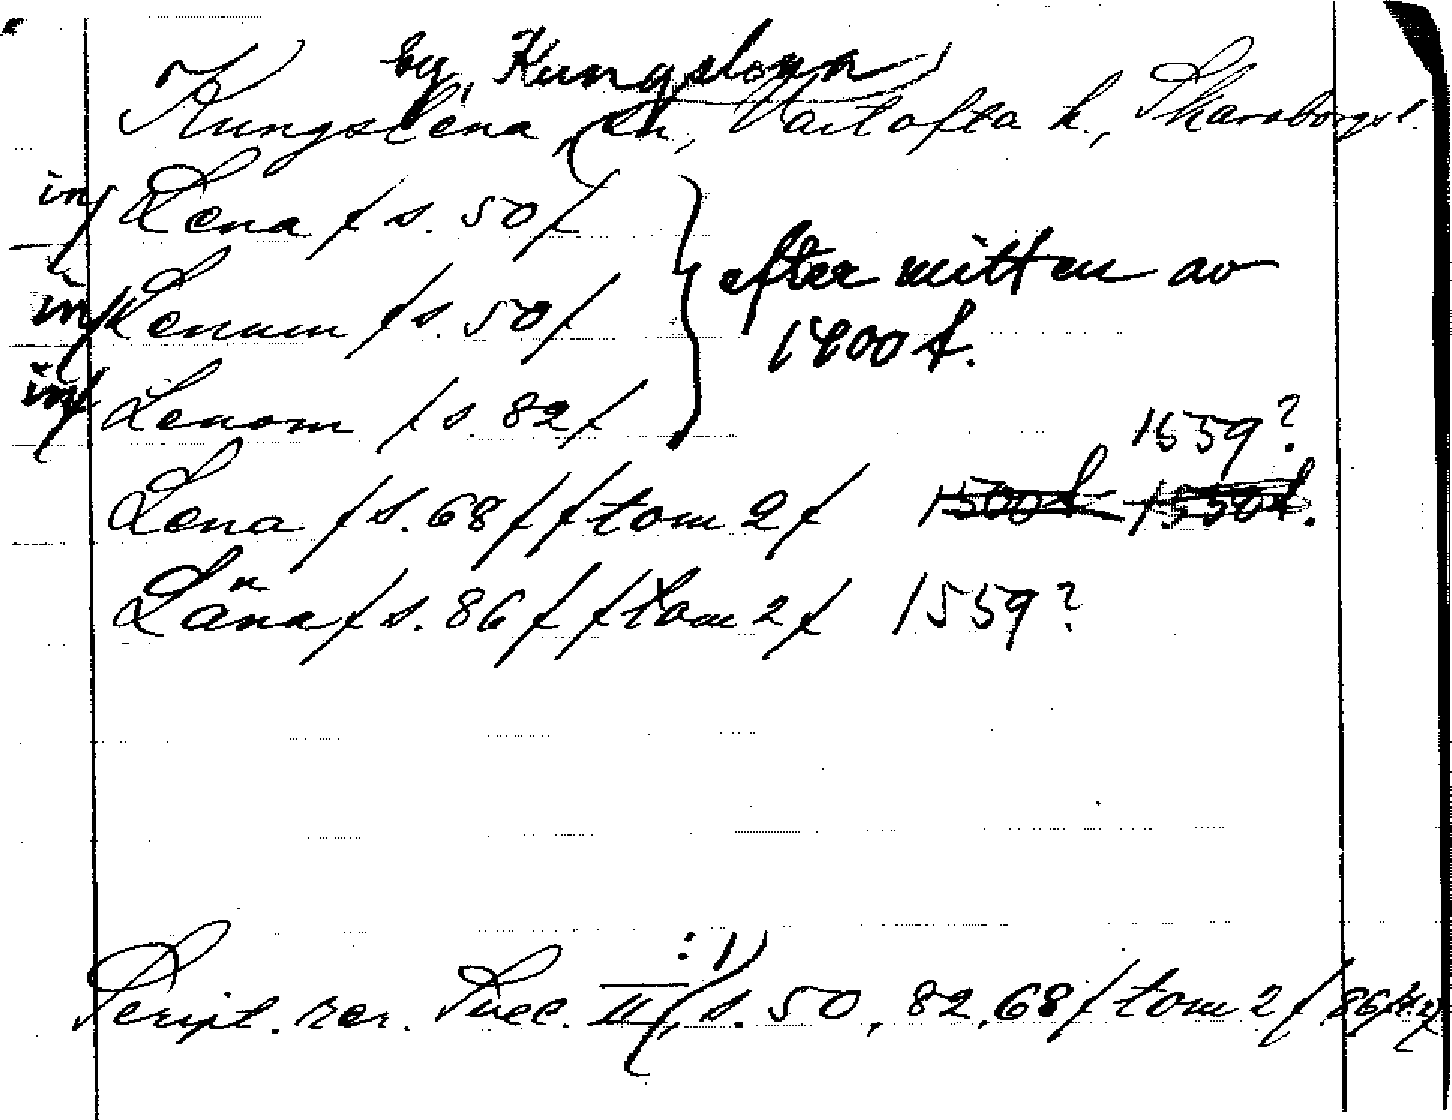 by, Kungslena
Kungslena sn, Vartofta h., Skaraborgs l.
inf Lena /s. 50/
inf Lenum /s. 50/ efter mitten av
1400 t.
inf Lenom /s. 82/
1559?
Lena /s. 68/ /tom 2/ 1500 t. 1550 t.
Läna /s. 86/ /tom 2/ 1559?
Script. rer. Svec. III :1) s. 50, 82, 68 /tom 2/ 86